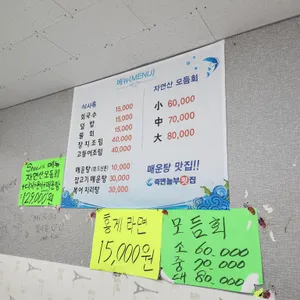 메뉴(MENU)
식사류
회국수 15,000
덮밥 15,000
물회 15,000
장치조림 40,000
고등어조림 40,000
매운탕 10,000
잡고기매운탕 30,000
복어지리탕 30,000
자연산 모듬회
小 60,000
中 70,000
大 80,000
매운탕 맛집!!
메뉴
자연산모듬회
125,000원
홍게라면
15,000원
모듬회
소 60.000
중 70.000
대 80.000